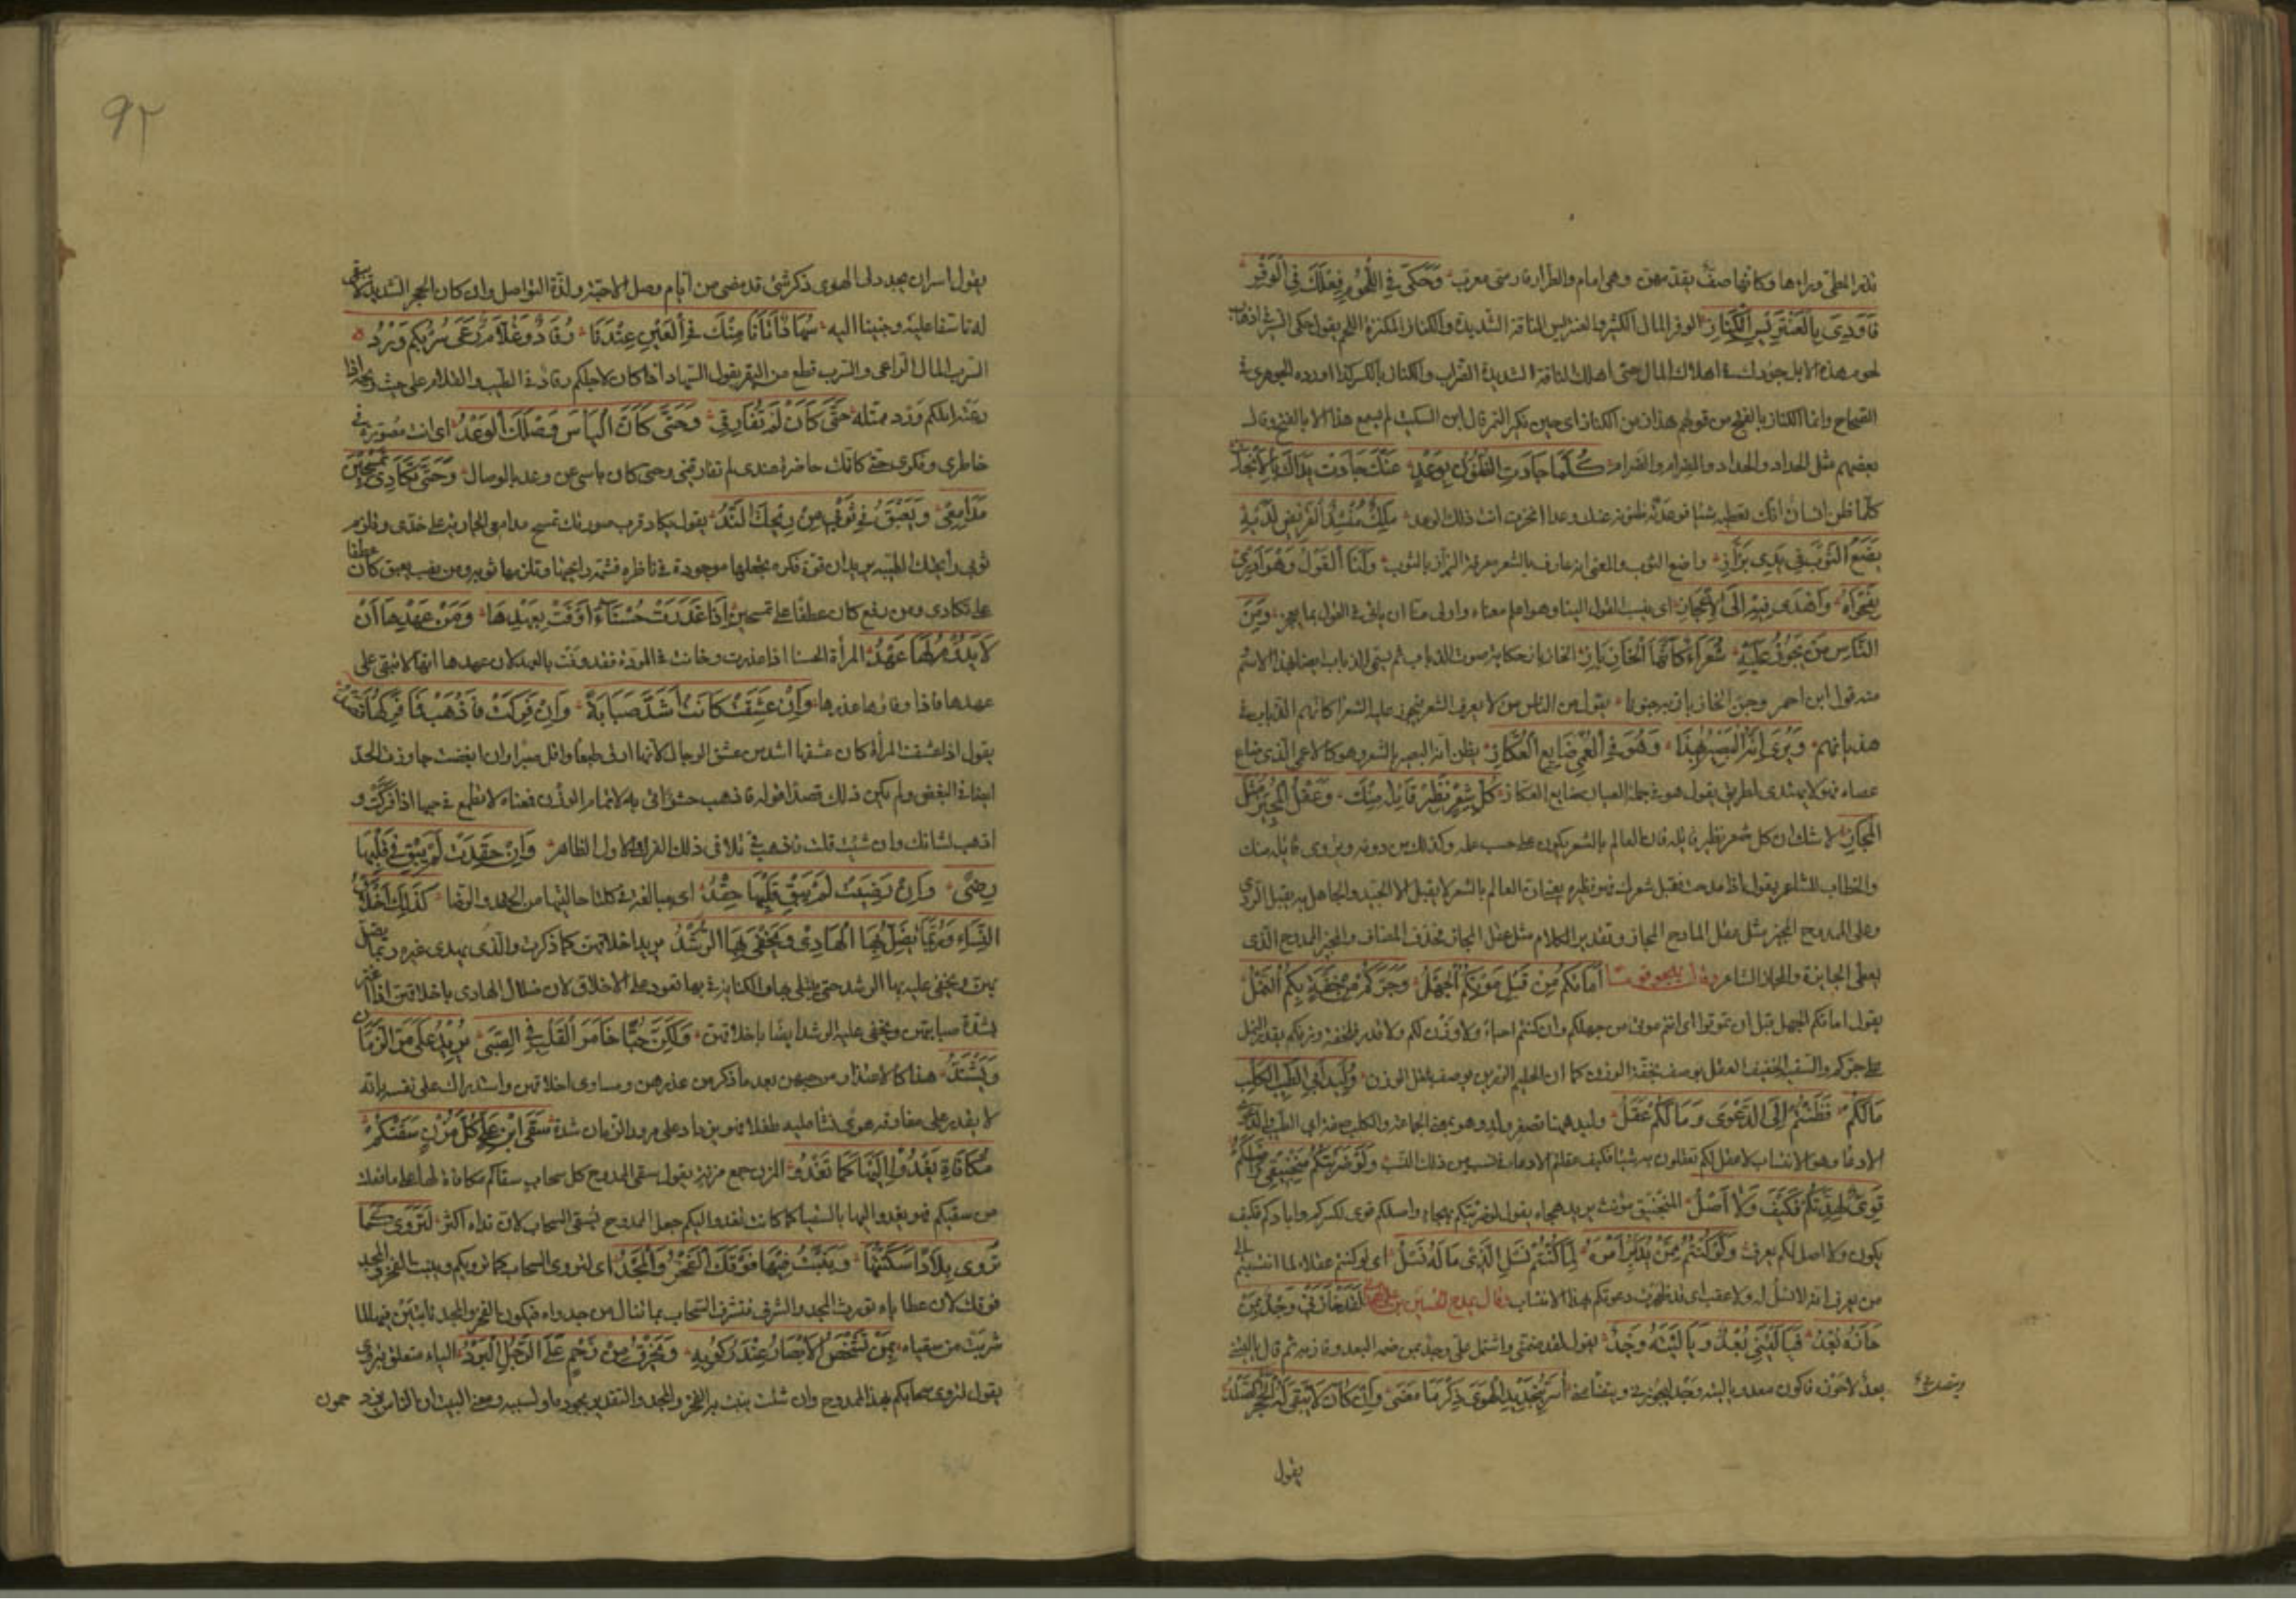 وَحَكَى فِي اللُّحُومِ فِعْلَكَ فِي الْوَفْرِ
فَأَوْدَى بِالْعَنْتَرِيسِ الْكِنَازِ الوفر المال الكثير والعنتريس الناقة الشديدة والكناز المكتنزة اللحم يقول حكى
لحوم هذه الابل جودك في اهلاك المال حتى اهلك الناقة الشديدة الضراب والكناز بالكسر كذا اورده الجوهري في
الصحاح وانما الكناز بالفتح من قولهم هذا زمن الكناز اي حين يكنز التمر قال ابن السكيت لم يسمع هذا الا بالفتح وقال
بعضهم مثل الجداد والجداد والصرام والصرام كُلَّمَا جَادَتِ الظُّنُونُ بِوَعْدٍ عَنْكَ جَادَتْ يَدَاكَ بِالْإِنْجَازِ
كلما ظن انسان انك تعطيه شيئا فوعدته ظنونه عنك وعدا انجزت انت ذلك الوعد مَلِكٌ مُنْشِدُ الْقَرِيضِ لَدَيْهِ
يَضَعُ الثَّوْبَ فِي يَدَيْ بَزَّازِ واضع الثوب والمعنى انه عارف بالشعر معرفة البزاز بالثوب وَلَنَا الْقَوْلُ وَهُوَ أَدْرَى
بِفَحْوَاهُ وَأَهْدَى فِيهِ إِلَى الْإِعْجَازِ اي ينسب القول الينا وهو اعلم بمعناه واولى منا ان ياتي في القول بما يعجز وَمِنَ
النَّاسِ مَنْ يَجُوزُ عَلَيْهِ شُعَرَاءٌ كَأَنَّهَا الْخَازِبَازِ الخازباز حكاية صوت الذباب ثم يسمى الذباب ايضا بهذا الاسم
منه قول ابن احمر وجن الخازباز به جنونا يقول من الناس من لا يعرف الشعر فيجوز عليه شعراء كانهم الذباب في
هذيانهم وَيَرَى أَنَّهُ الْبَصِيرُ بِهَذَا وَهُوَ فِي الْعُمْيِ ضَايِعُ الْعُكَّازِ يظن انه البصير بالشعر وهو كالاعمى الذي ضاع
عصاه فهو لا يهتدي لطريق يقول هو في جملة العميان ضايع العكاز كُلُّ شِعْرٍ نَظِيرُ قَائِلِهِ مِنْكَ وَعَقْلُ الْمُجِيزِ مِثْلُ
الْمُجَازِ لا شك ان كل شعر نظير قائله فان العالم بالشعر يكون على حسب علمه وكذلك من دونه ويروى قابله منك
والخطاب للشاعر يقول اذا مدحت فقبل شعرك فهو نظيره يعني ان العالم بالشعر لا يقبل الا الجيد والجاهل به يقبل الردي
وعلى الممدوح المجيز مثل عقل المادح المجاز وتقدير الكلام مثل عقل المجاز فحذف المضاف والمجيز الممدوح الذي
يعطي الجايزة والمجاز الشاعر وقال يهجو قوما أَمَاتَكُمُ مِنْ قَبْلِ مَوْتِكُمُ الْجَهْلُ وَجَرَّكُمْ مِنْ خِفَّةٍ بِكُمُ النَّمْلُ
يقول اماتكم الجهل قبل ان تموتوا اي انتم موتى من جهلكم وان كنتم احياء ولا وزن لكم ولا قدر فلخفة وزنكم يقدر النمل
على جركم والسفيه الخفيف العقل يوصف بخفة الوزن كما ان الحليم الرزين يوصف بثقل الوزن وُلَيْدَ أُبَيِّ الطَّيِّبِ الْكَلْبِ
مَالَكُمْ فَطَنْتُمْ إِلَى الدَّعْوَى وَمَا لَكُمْ عَقْلُ وليد ههنا تصغير ولد وهو بمعنى الجماعة والكلب صفة ابي الطيب والدعوى
الادعاء وهو الانتساب لا عقل لكم تعقلون به شيئا فكيف عقلتم الادعاء في نسب من ذلك النسب وَلَوْ ضَرَبَتْكُمْ مَنْجَنِيقِي وَأَصْلُكُمْ
قَوِيٌّ لَهَدَّتْكُمْ فَكَيْفَ وَلَا أَصْلُ المنجنيق مؤنث يريد هجاءه يقول لو ضربتكم بهجاء واصلكم قوي لكسركم وابادكم فكيف
يكون ولا اصل لكم يعرف وَلَوْ كُنْتُمُ مِمَّنْ يُدَبِّرُ أَمْرَهُ لَمَا كُنْتُمُ نَسْلَ الَّذِي مَا لَهُ نَسْلُ اي لو كنتم عقلاء لما انتسبتم الى
من يعرف انه لا نسل له ولا عقب اي قد ظهرت دعوتكم بهذا الانتساب وقال يمدح الحسين بن علي لَقَدْ حَازَنِي وَجْدٌ بِمَنْ
حَازَهُ بُعْدُ فَيَا لَيْتَنِي بُعْدٌ وَيَا لَيْتَهُ وَجْدُ يقول لقد ضمني واشتمل علي وجد بمن ضمه البعد وقارنه ثم قال يا ليتني
بعد لاحوزه فاكون معه ويا ليته وجد ليحوزني ويتصل بي أُسَرُّ بِتَجْدِيدِ الْهَوَى ذِكْرَ مَا مَضَى وَإِنْ كَانَ لَا يَبْقَى لَهُ الْحَجَرُ الصَّلْدُ
يقول
٩٢
يقول اسر ان يجدد لي الهوى ذكر شيء قد مضى من ايام وصل الاحبة ولذة التواصل وان كان الحجر الشديد لا يبقى
له تاسفا عليه وحنينا اليه سُهَادٌ أَتَانَا مِنْكَ فِي الْعَيْنِ عِنْدَنَا رُقَادٌ وَقُلَّامٌ رَعَى سَرْبُكُمْ وَرْدُ
السرب المال الراعي والسرب قطع من البقر يقول السهاد اذا كان لاجلكم رقاد في الطيب والقلام على خبث ريحه اذا
رعته ابلكم ورد مُمَثَّلَةٌ حَتَّى كَأَنْ لَمْ تُفَارِقِي وَحَتَّى كَأَنَّ الْيَأْسَ مِنْ وَصْلِكِ الْوَعْدُ اي انت مصورة في
خاطري وفكري حتى كانك حاضرة عندي لم تفارقيني وحتى كان ياسي من وعد بالوصال وَحَتَّى تَكَادِي تَمْسَحِينَ
مَدَامِعِي وَيَعْبَقُ فِي ثَوْبِي مِنْ رِيحِكِ النَّدُّ يقول يكاد قرب صورتك تمسح مدامعي الجارية على خدي وتلزم
ثوبي رايحتك الطيبة يريد ان قوة فكره يجعلها موجودة في ناظره فتشم رايحتها وتلزمها ثوبه ومن نصب يعبق كان عطفا
على تكادي ومن رفع كان عطفا على تمسحين إِذَا غَدَرَتْ حَسْنَاءُ أَوْفَتْ بِعَهْدِهَا وَمِنْ عَهْدِهَا أَنْ
لَا يَدُومَ لَهَا عَهْدُ المرأة الحسنا اذا غدرت وخانت في المودة فقد وفت بالعهد لان عهدها انها لا تبقى على
عهدها فاذا وفاؤها غدرها وَإِنْ عَشِقَتْ كَانَتْ أَشَدَّ صَبَابَةً وَإِنْ فَرِكَتْ فَاذْهَبْ فَمَا فِرْكُهَا قَصْدُ
يقول اذا عشقت المرأة كان عشقها اشد من عشق الرجال لانها ارق طبعا واقل صبرا وان ابغضت جاوزت الحد
ايضا في البغض ولم يكن ذلك قصدا قوله فاذهب حشو اتى به لاتمام الوزن فمعناه لا تطمع في حبها اذا فركت و
اذهب لشانك وان شئت قلت فاذهب في تلافي ذلك الفرك والاول الظاهر وَإِنْ حَقَدَتْ لَمْ يَبْقَ فِي قَلْبِهَا
رِضًى وَإِنْ رَضِيَتْ لَمْ يَبْقَ فِي قَلْبِهَا حِقْدُ اي مبالغة في كلتا حالتيها من الحقد والرضا كَذَلِكَ أَخْلَاقُ
النِّسَاءِ وَرُبَّمَا يَضِلُّ بِهَا الْهَادِي وَيَخْفَى بِهَا الرُّشْدُ يريد اخلاقهن كما ذكرت والذي يهدي غيره ربما يضل
بهن ويخفى عليه بها الرشد حتى يبتلى بها والكناية في بها تعود على الاخلاق لان ضلال الهادي باخلاقهن اذا اغتر
بشدة صبابتهن ويخفى عليه الرشد ايضا باخلاقهن وَلَكِنَّ حُبًّا خَامَرَ الْقَلْبَ فِي الصِّبَى يَزِيدُ عَلَى مَرِّ الزَّمَانِ
وَيَشْتَدُّ هذا كالاعتذار من حبهن بعد ما ذكر من غدرهن ومساوي اخلاقهن واستدراك على نفسه بانه
لا يقدر على مفارقة هوى نشا عليه طفلا فهو يزداد على مرور الزمان شدة سَقَى ابْنُ عَلِيٍّ كُلَّ مُزْنٍ سَقَتْكُمُ
مُكَافَاةً يَغْدُو إِلَيْهَا كَمَا تَغْدُو المزن جمع مزنة يقول سقى الممدوح كل سحاب سقاكم مكافاة لها على ما فعلت
من سقيكم فهو يغدو اليها بالسقيا كما كانت تغدو اليكم جعل الممدوح يسقي السحاب لان نداه اكثر لِتَرْوَى كَمَا
تُرْوِي بِلَادًا سَكَنْتِهَا وَيَنْبُتُ فِيهَا فَوْقَكَ الْفَخْرُ وَالْمَجْدُ اي لتروى السحاب كما ترويكم وينبت الفخر والمجد
فوقك لان عطاياه تورث المجد والشرف فتشرف السحاب بما تنال من جدواه فيكون الفخر والمجد نابتين فيها لما
شربت من سقياه بِمَنْ تَشْخَصُ الْأَبْصَارُ عِنْدَ رُكُوبِهِ وَيُخْرَقُ مِنْ زَحْمٍ عَلَى الرَّجُلِ الْبُرْدُ الباء متعلق بتروى
يقول لتروى سحابكم بهذا الممدوح وان شئت ينبت به الفخر والمجد والتقدير بجوده او بسيبه ومعنى البيت ان الناس